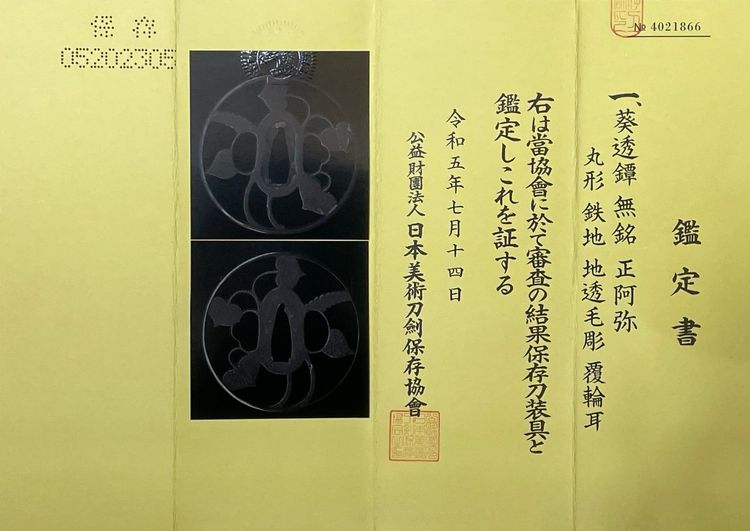 № 4021866
鑑定書
一、葵透鐔 無銘 正阿弥
丸形 鉄地 地透毛彫 覆輪耳
右は當協會に於て審査の結果保存刀装具と
鑑定しこれを証する
令和五年七月十四日
公益財團法人 日本美術刀劍保存協會
保存